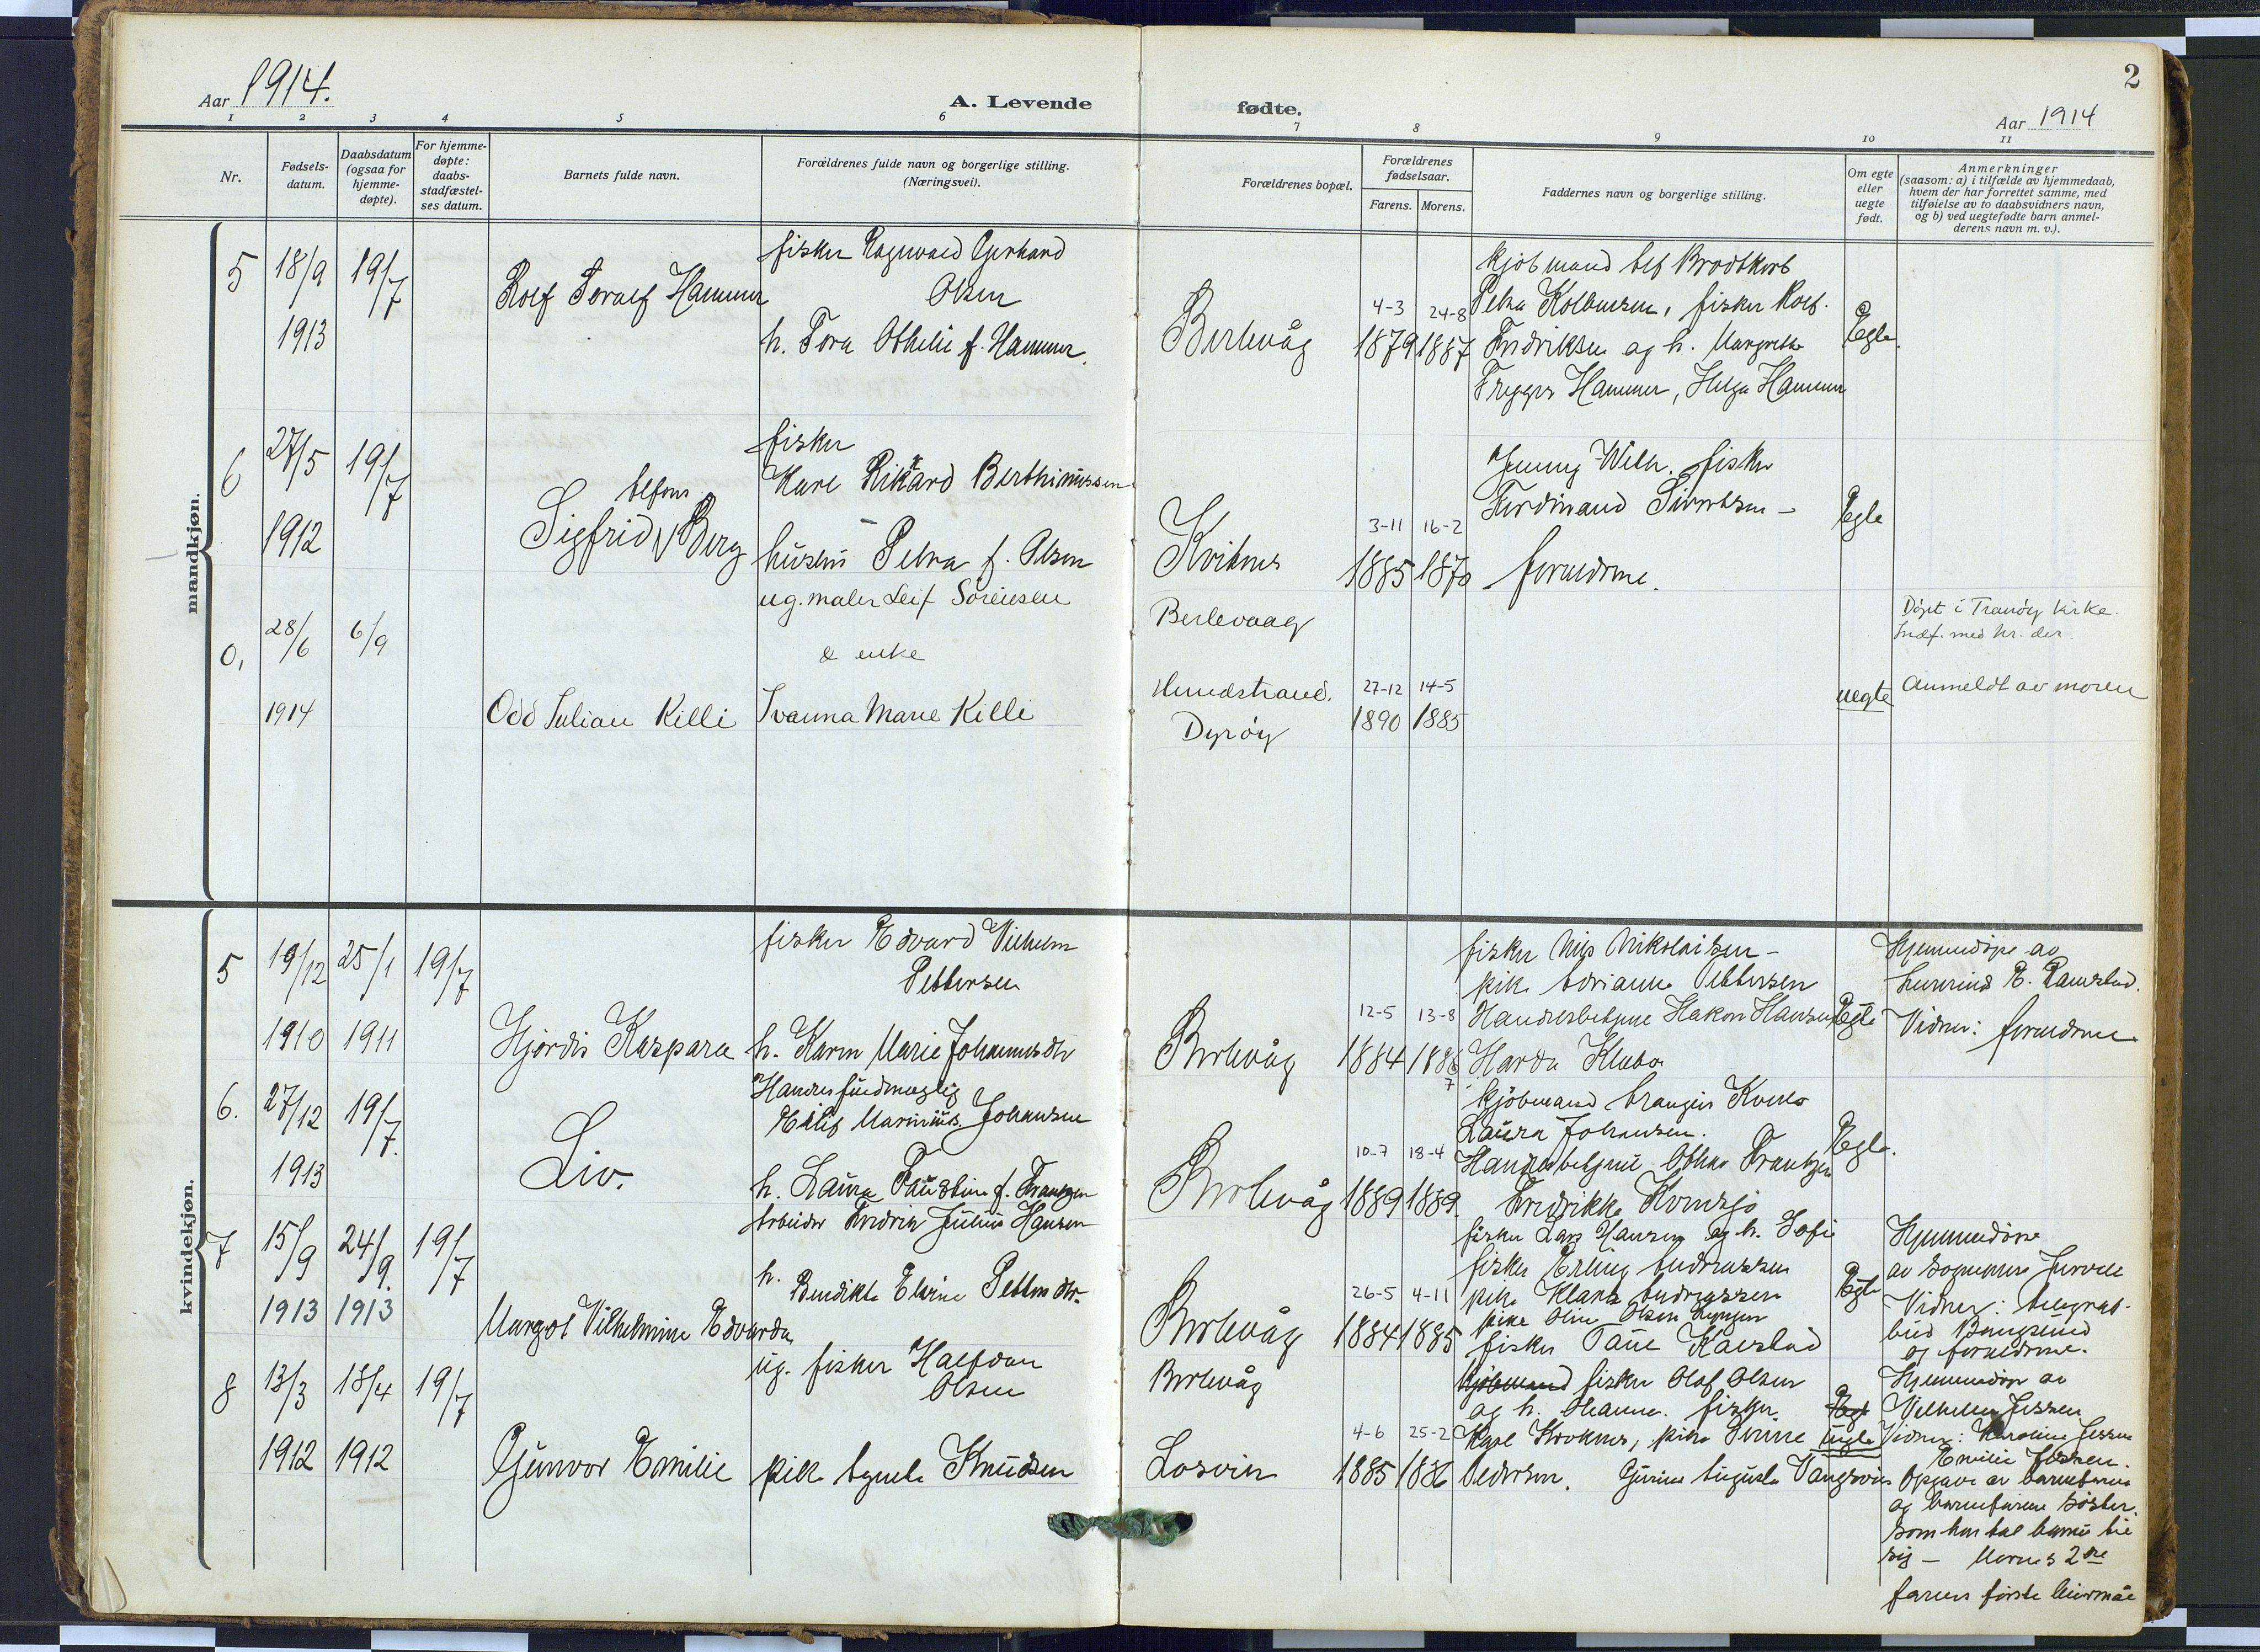 Aar 1914.
A. Levende
fødte.
2
Aar 1914
1 2 3 4 5 6 7 8 9 10 11
Nr.
Fødsels-
datum.
Daabsdatum
(ogsaa for
hjemme-
døpte).
For hjemme-
døpte:
daabs-
stadfæstel-
ses datum.
Barnets fulde navn.
Forældrenes fulde navn og borgerlige stilling.
(Næringsvei).
Forældrenes bopæl.
Forældrenes
fødselsaar.
Farens. Morens.
Faddernes navn og borgerlige stilling.
Om egte
eller
uegte
født.
Anmerkninger
(saasom: a) i tilfælde av hjemmedaab,
hvem der har forrettet samme, med
tilføielse av to daabsvidners navn,
og b) ved uegtefødte barn anmel-
derens navn m. v.).
mandkjøn.
5 18/9 19/7
1913
Rolf Toralf Hammer
fisker Ragnvald Gerhard
Olsen
h. Tora Othelie f. Hammer.
Berlevåg
4-3 24-8
1879 1887
kjøbmand Brodtkorb
Petra Kolbensen, fisker
Fredriksen og h. Margrethe
Trygve Hammer, Helga Hammer
Egte.
6 27/5 19/7
1912
Alfons
Sigfrid V Berg
fisker
Karl Rikard Berthinussen
hustru Petra f. Olsen
Kvitnes
3-11 16-2
1885 1870
Jenny Wilh. fisker
Ferdinand Sivertsen -
forældrene.
Egte
0, 28/6 6/9
1914
Odd Julian Killi
ug. maler Leif Sørensen
& enke
Ivanna Marie Killi
Berlevaag
Hundstrand.
Dyrøy
27-12 14-5
1890 1885
uegte
Døpt i Tranøy kirke.
Indf. med nr. der.
Anmeldt av moren
kvindekjøn.
5 19/12 25/1 19/7
1910 1911
Hjørdis Kaspara
fisker Edvard Vilhelm
Pettersen
h. Karen Marie Johannesdtr
Berlevåg
12-5 13-8
1884 1886
7
fisker Nils Nikolaisen -
pike Adriane Pettersen
Handelsbetjent Hakon Hansen
Harda Klubo
Egte
Hjemmedøpt av
lærerinde E. Ramstad.
Vidner: forældrene
6. 27/12 19/7.
1913
Liv.
Handelsfuldmægtig
Eilif Marinius Johansen
h. Laura Faustine f. Frantzen
Berlevåg
10-7 18-4
1889 1889.
kjøbmand
Laura Johansen.
Handelsbetjent Othar Frantzen
Fredrikke
Egte.
7 15/9 24/9. 19/7
1913 1913
Margot Vilhelmine Edvarda
Arbeider Fredrik Julius Hansen
h.
Bendikte Elvine Pettersdtr.
Berlevåg
26-5 4-11
1884 1885
fisker Lars Hansen og h. Sofie
fisker Erling Andreassen
pike Klara Andreassen
pike Oline Olsen Lyngen
fisker Paul Kaarstad
Egte
Hjemmedøpt
av sogneprest
Vidner: telegraf-
bud Bangsund
og forældrene.
8 13/3 18/4 19/7
1912 1912
Gunvor Emilie
ug. fisker Halfdan
Olsen
pike Agnete Knudsen
Berlevåg
Losvik
4-6 25-2
1885 1886
kjøbmand fisker Olaf Olsen
og h. Hanna. fisker
Karl Kroknes, pike
Pedersen. Gurine Augusta Vangsvik
Egte
uegte
Hjemmedøpt av
Vilhelm Jessen
Vidner: Karoline Jessen
Emilie Jessen.
Opgave av barnefaren
og barnefarens søster.
som har tat barnet til
sig - Morens 2det
farens første leiermål